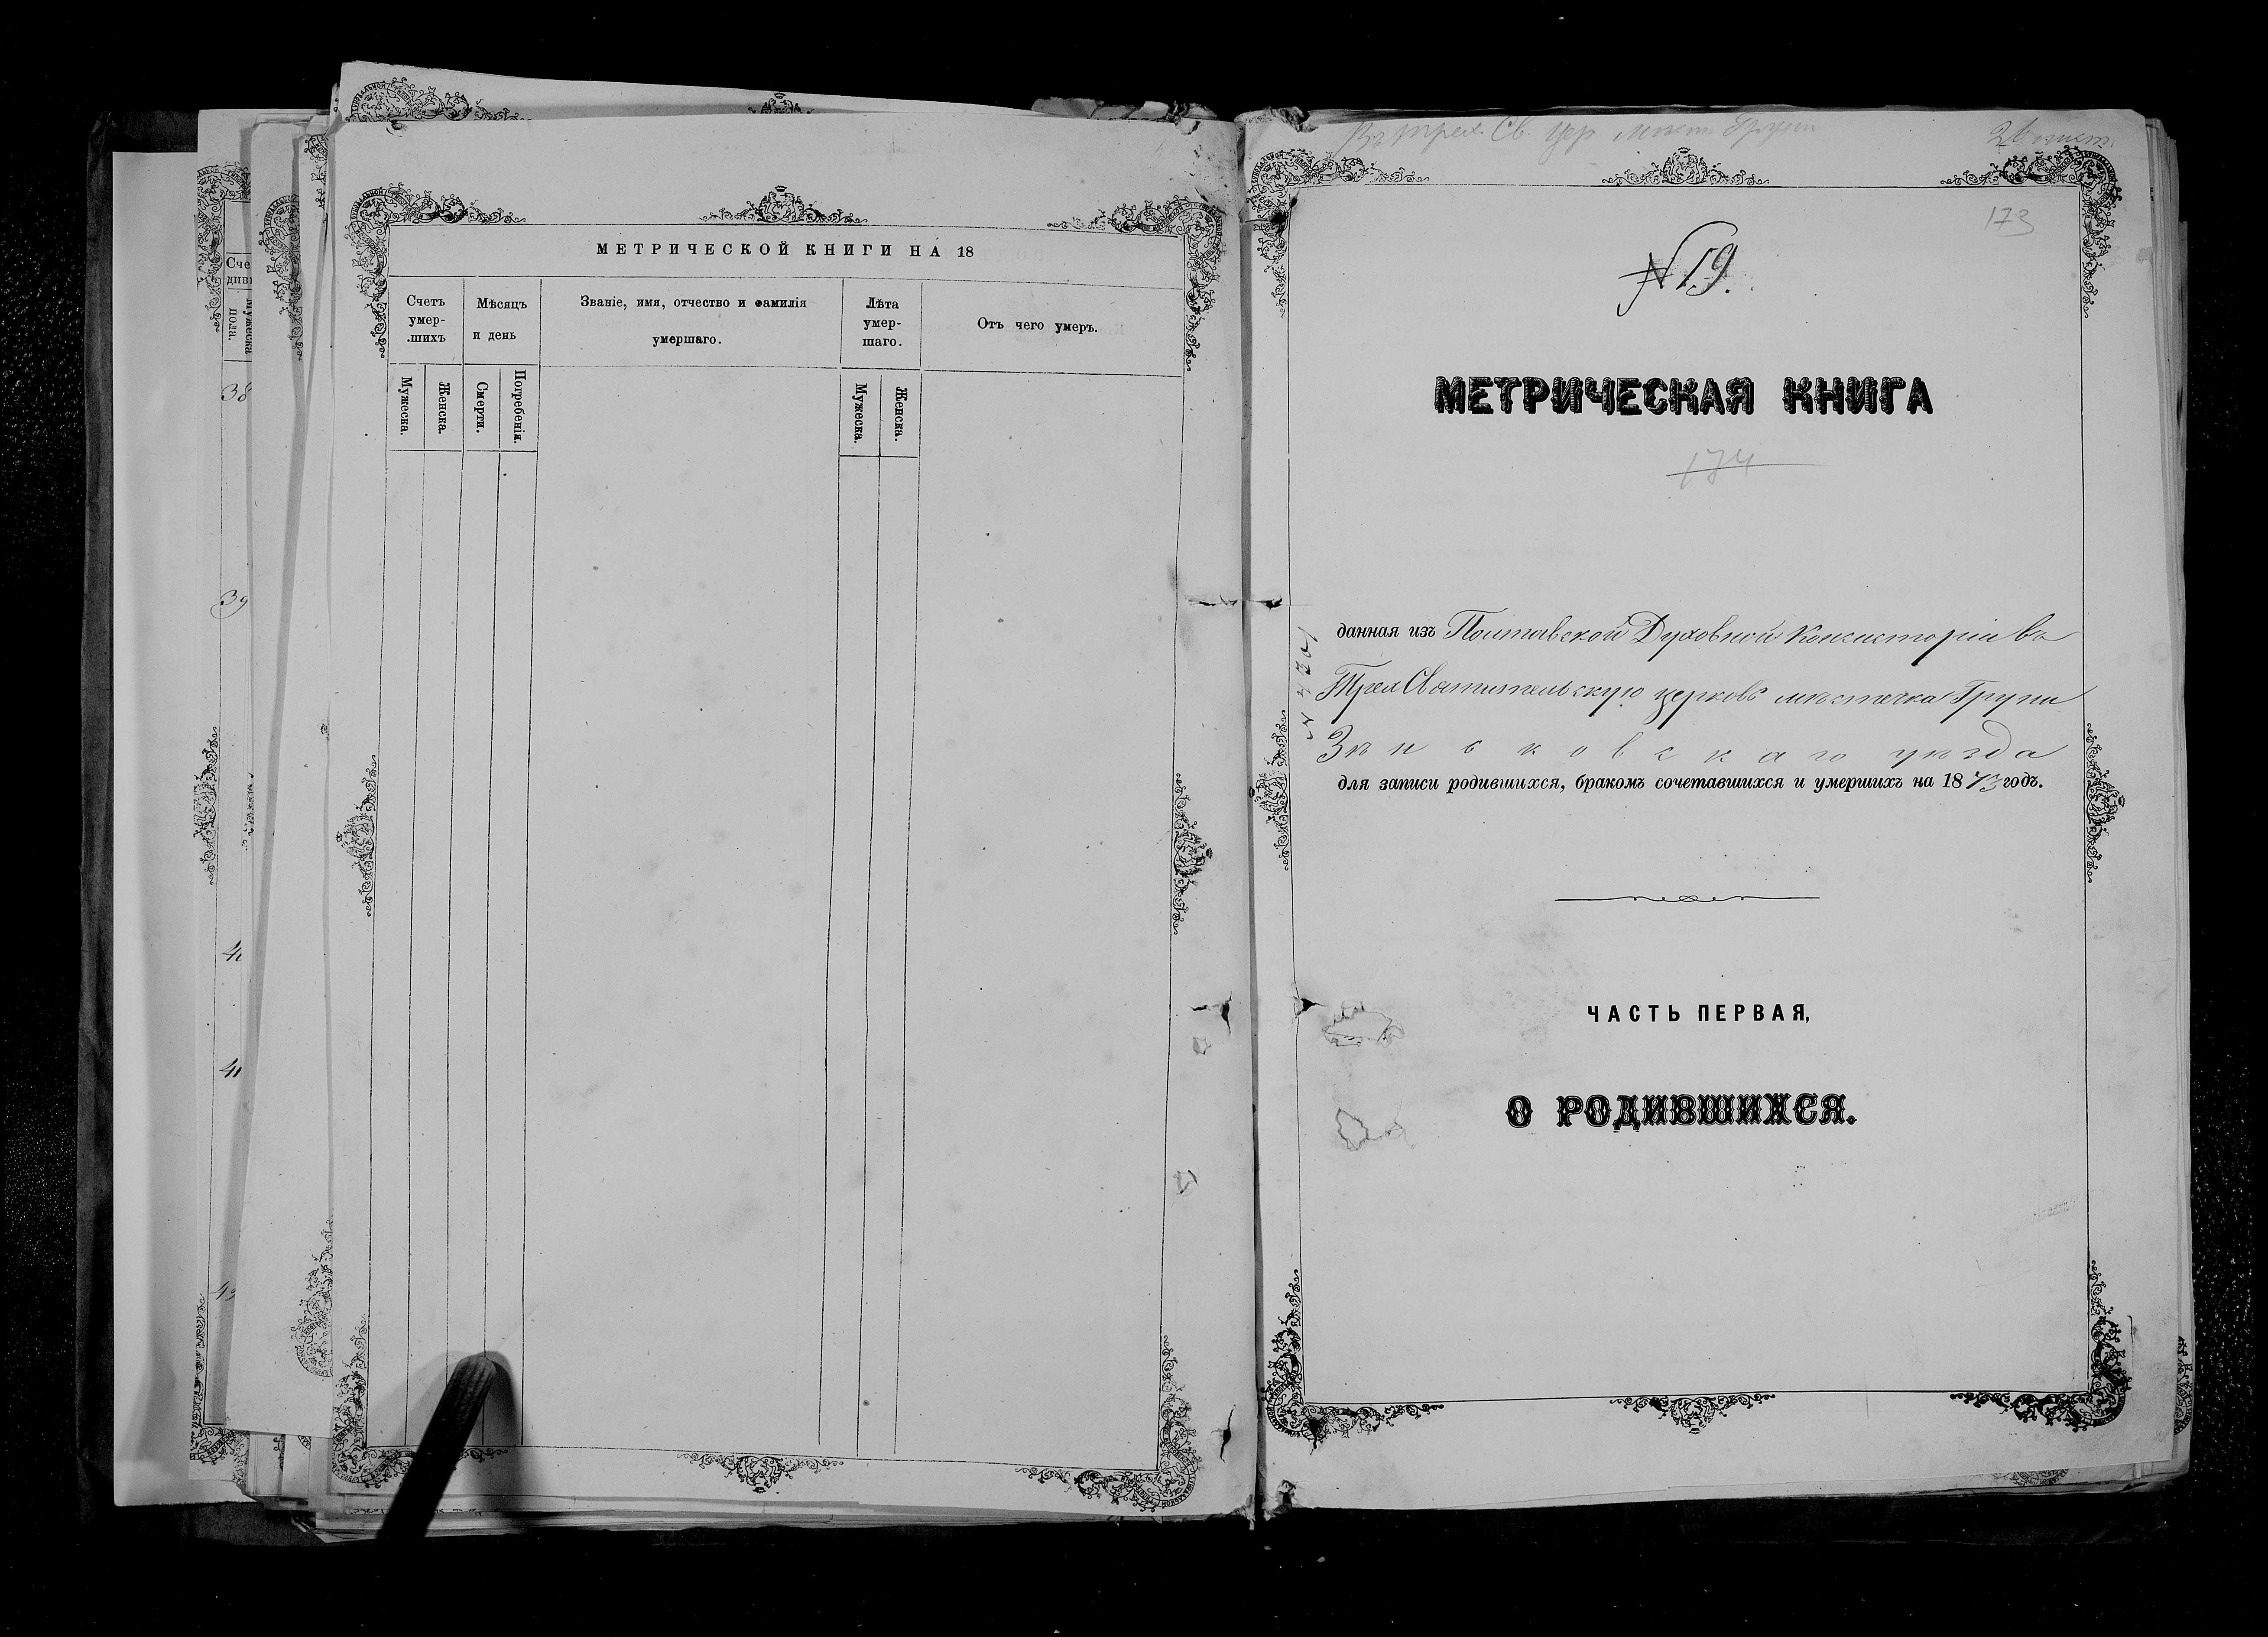 Сче
див
мужеска
пола.
38
39
40
41
МЕТРИЧЕСКОЙ КНИГИ НА 18
Счетъ умер-шихъ
Мѣсяцъ и день
Званіе, имя, отчество и фамилія умершаго.
Лѣта умер-шаго.
Отъ чего умеръ.
Мужеска.
Женска.
Смерти.
Погребенія.
Мужеска.
Женска.
Въ Трех. Св. Цер. мѣст. Груни
173
№ 19.
МЕТРИЧЕСКАЯ КНИГА
174
данная изъ Полтавской Духовной Консисторіи въ
Трех Святительскую церковь мѣстечка Груни
Зѣньковскаго уѣзда
для записи родившихся, бракомъ сочетавшихся и умершихъ на 1873 годъ.
ЧАСТЬ ПЕРВАЯ,
О РОДИВШИХСЯ.